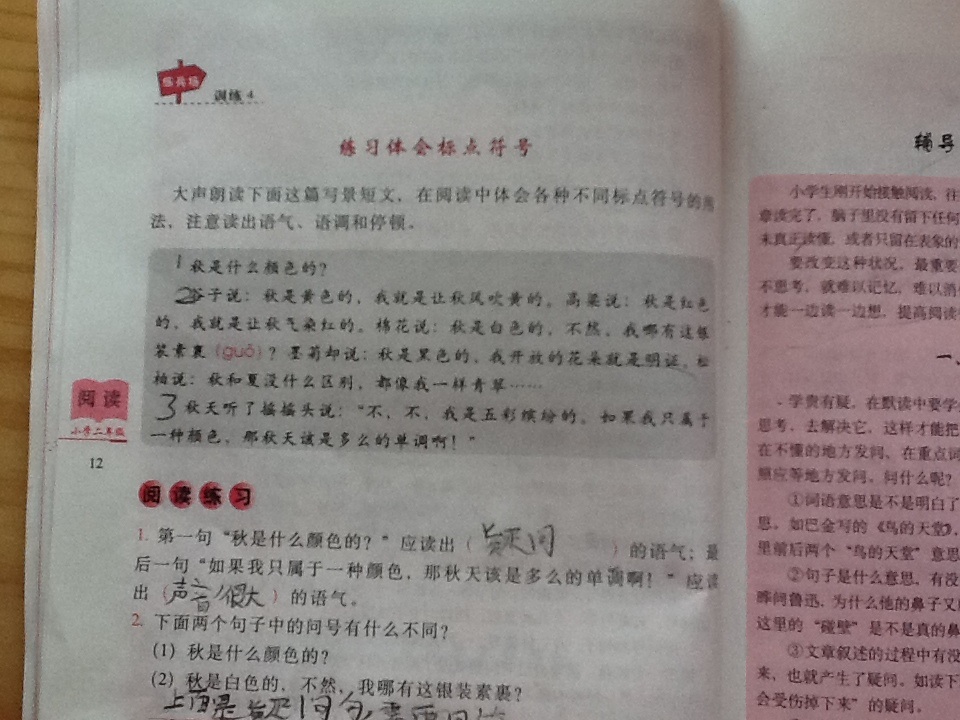 练兵场
训练 4
练习体会标点符号
大声朗读下面这篇写景短文，在阅读中体会各种不同标点符号的用
法，注意读出语气、语调和停顿。
1 秋是什么颜色的？
2 谷子说：秋是黄色的，我就是让秋风吹黄的。高粱说：秋是红色
的，我就是让秋气染红的。棉花说：秋是白色的，不然，我哪有这银
装素裹（guǒ）？墨菊却说：秋是黑色的，我开放的花朵就是明证。松
柏说：秋和夏没什么区别，都像我一样青翠……
3 秋天听了摇摇头说：“不，不，我是五彩缤纷的。如果我只属于
一种颜色，那秋天该是多么的单调啊！”
阅读
小学二年级
12
阅读练习
1. 第一句“秋是什么颜色的？”应读出（疑问）的语气；最
后一句“如果我只属于一种颜色，那秋天该是多么的单调啊！”应读
出（声音很大）的语气。
2. 下面两个句子中的问号有什么不同？
(1) 秋是什么颜色的？
(2) 秋是白色的，不然，我哪有这银装素裹？
上面是疑问句
辅导
小学生刚开始接触阅读，往
章读完了，脑子里没有留下任何
未真正读懂，或者只留在表象的
要改变这种状况，最重要
不思考，就难以记忆，难以消
才能一边读一边想，提高阅读
一、
学贵有疑，在默读中要学
思考，去解决它，这样才能把
在不懂的地方发问、在重点词
照应等地方发问，问什么呢？
①词语意思是不是明白了
思，如巴金写的《鸟的天堂》，
里前后两个“鸟的天堂”意思
②句子是什么意思，有没
晔问鲁迅，为什么他的鼻子又
这里的“碰壁”是不是真的鼻
③文章叙述的过程中有没
来，也就产生了疑问。如读下
会受伤掉下来”的疑问。